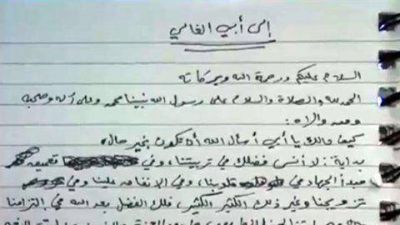 إلى أبي الغالي
السلام عليكم ورحمة الله وبركاته
الحمد لله والصلاة والسلام على رسول الله نبينا محمد وعلى آله وصحبه
ومن والاه:
كيف حالك يا أبي أسأل الله أن تكون بخير حال،
بداية: لا أنسى فضلك في تربيتنا وفي تعميقه
مبدأ الجهاد في قلوبنا، وفي الإنفاق علينا وفي
تزويجنا وغير ذلك الكثير الكثير، فلك الفضل بعد الله في التزامنا